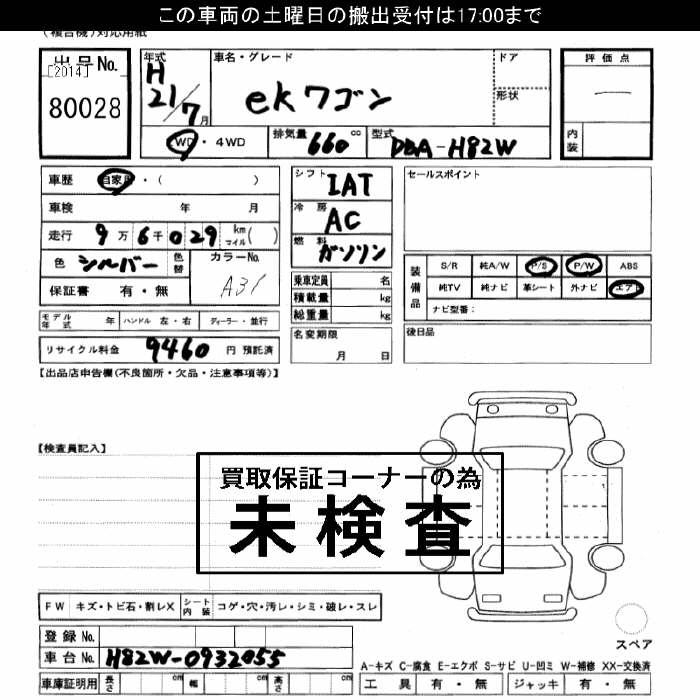 この車両の土曜日の搬出受付は17:00まで
(複合機)対応用紙
出品No.
[2014]
80028
年式
H
21/7月
車名・グレード
ekワゴン
ドア
形状
評価点
内装
2WD・4WD
排気量 660 cc
型式 DBA-H82W
車歴 自家用・( )
車検 年 月
走行 9万6千029 km マイル( )
色 シルバー 色替
カラーNo. A31
保証書 有・無
シフト IAT
冷房 AC
燃料 ガソリン
乗車定員 名
積載量 kg
総重量 kg
セールスポイント
装備品
S/R 純A/W P/S P/W ABS
純TV 純ナビ 革シート 外ナビ エアB
ナビ型番:
モデル年式 年 ハンドル 左・右 ディーラー・並行
名変期限
月 日
後日品
リサイクル料金 9460 円 預託済
【出品店申告欄(不良箇所・欠品・注意事項等)】
【検査員記入】
買取保証コーナーの為
未検査
FW キズ・トビ石・割レX シート内装 コゲ・穴・汚レ・シミ・破レ・スレ
登録No.
車台No. H82W-0932055
車庫証明用 長さ cm 幅 cm 高さ cm
スペア
A-キズ C-腐食 E-エクボ S-サビ U-凹ミ W-補修 XX-交換済
工具 有・無 ジャッキ 有・無